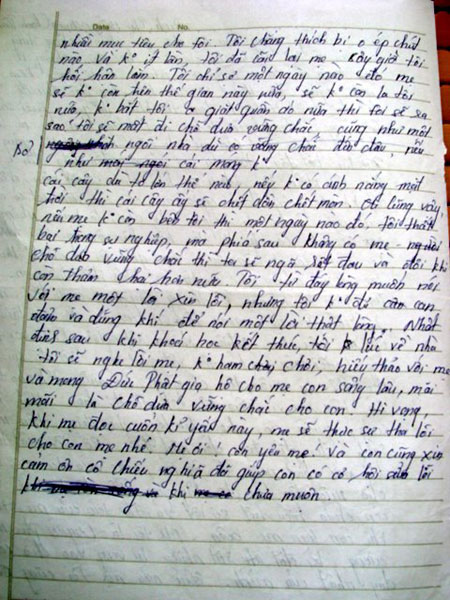 Date No.
nhiều mục tiêu cho tôi. Tôi chẳng thích bị o ép chút
nào, và k° ít lần, tôi đã cãi lại mẹ - giờ tôi
hối hận lắm. Tôi chỉ sợ một ngày nào đó mẹ
sẽ k° còn trên thế gian này nữa, sẽ k° còn la tôi
nữa, k° bắt tôi giặt quần áo nữa thì tôi sẽ ra
sao? tôi sẽ mất đi chỗ dựa vững chắc, cũng như một
ngôi nhà dù có vững chãi đến đâu, nếu
như cái móng k°
cái cây dù to lớn thế nào, nếu k° có ánh nắng mặt
trời thì cái cây ấy sẽ chết dần chết mòn. cũng vậy,
nếu mẹ k° còn bên tôi thì một ngày nào đó, tôi thất
bại trong sự nghiệp, mà phía sau không có mẹ - người
chỗ dựa vững chắc thì tôi sẽ ngã rất đau và đôi khi
còn thảm hại hơn nữa. Tôi từ đáy lòng muốn nói
với mẹ một lời xin lỗi, nhưng tôi k° đủ can can
đảm và dũng khí để nói một lời thật lòng. Nhất
định sau khi khoá học kết thúc, tôi về nhà
tôi sẽ nghe lời mẹ, k° ham chơi, hiếu thảo với mẹ
và mong Đức Phật gia hộ cho mẹ con sống lâu, mãi
mãi là chỗ dựa vững chắc cho con. Hi vọng,
khi mẹ đọc cuốn kỉ yếu này, mẹ sẽ thực sự tha lỗi
cho con mẹ nhé. Mẹ ơi! con yêu mẹ! Và con cũng xin
cảm ơn cô Chiêu nghiã đã giúp con có cơ hội sửa lỗi
khi chưa muộn